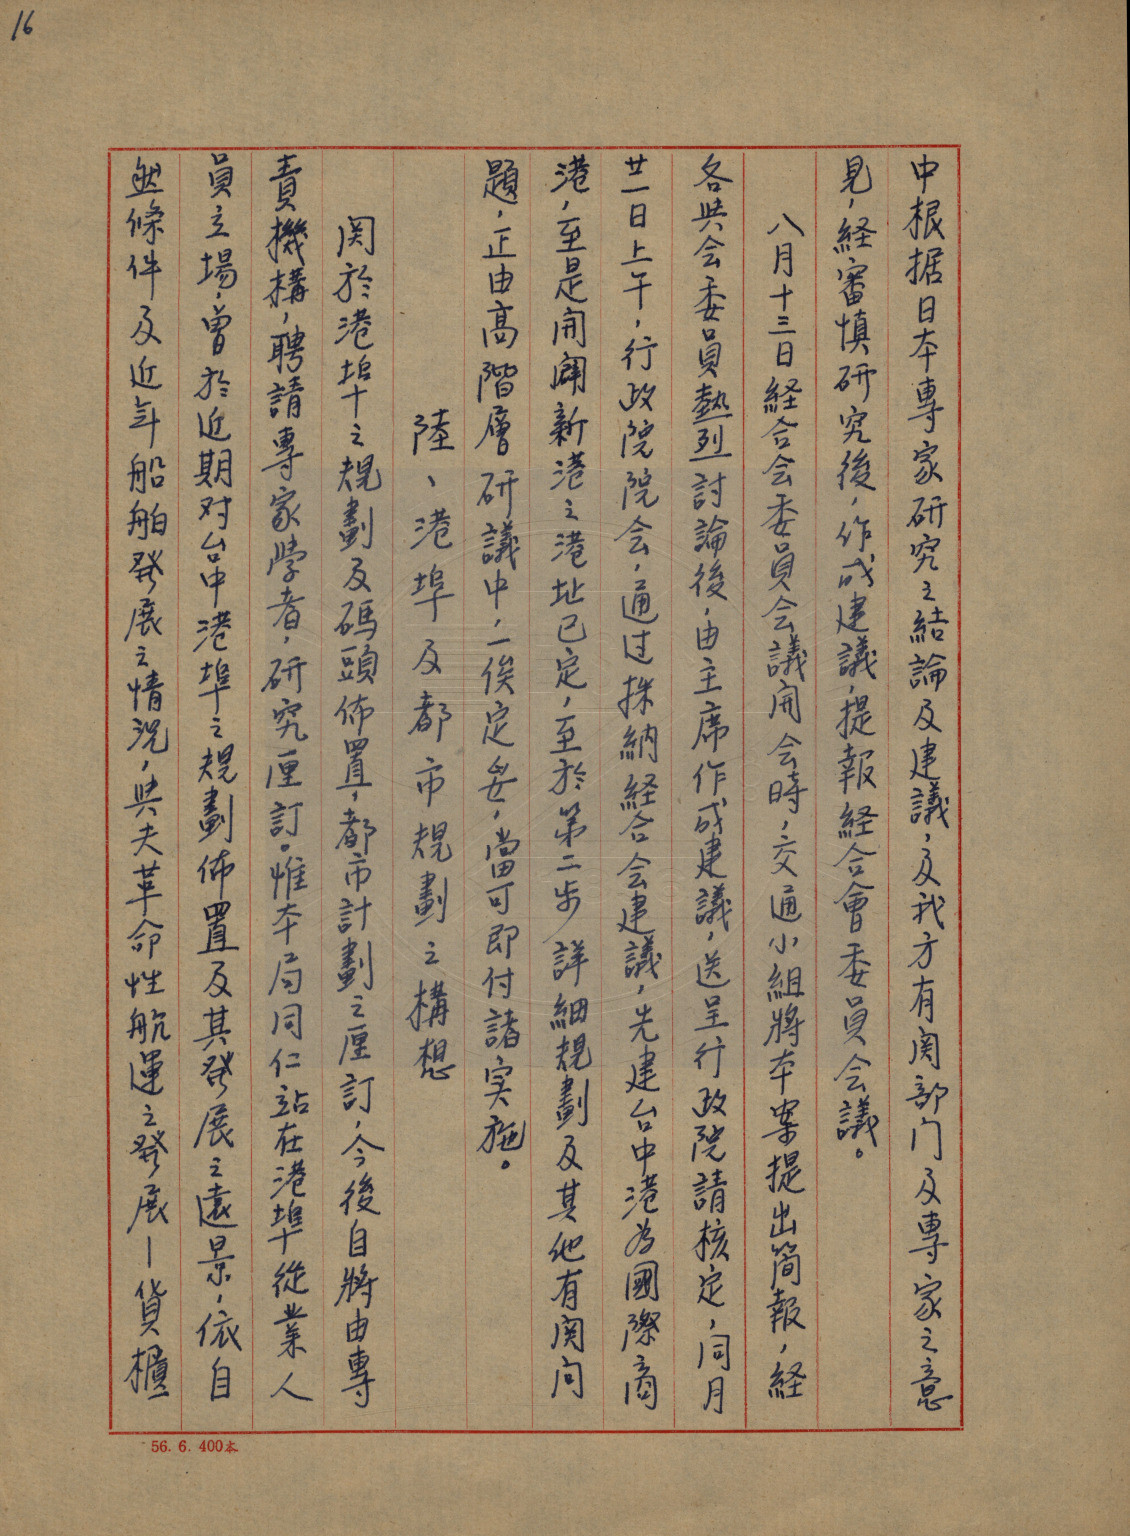 16
中根据日本專家研究之結論及建議，及我方有関部门及專家之意
見，経審慎研究後，作成建議，提報経合會委員会議。
八月十三日経合会委員会議開会時，交通小組將本案提出简報，経
各與会委員熱烈討論後，由主席作成建議，送呈行政院請核定，同月
廿一日上午，行政院院会，通过採納経合会建議，先建台中港為國際商
港，至是開闢新港之港址已定，至於第二步詳細規劃及其他有関问
題，正由高階層研議中，一俟定妥，當可即付諸实施。
陸、港埠及都市規劃之構想
関於港埠之規劃及碼頭佈置，都市計劃之厘訂，今後自將由專
責機構，聘請專家學者，研究厘訂。惟本局同仁站在港埠從業人
員立場，曾於近期对台中港埠之規劃佈置及其發展之遠景，依自
然條件及近年船舶發展之情況，與夫革命性航運之發展—貨櫃
56. 6. 400本